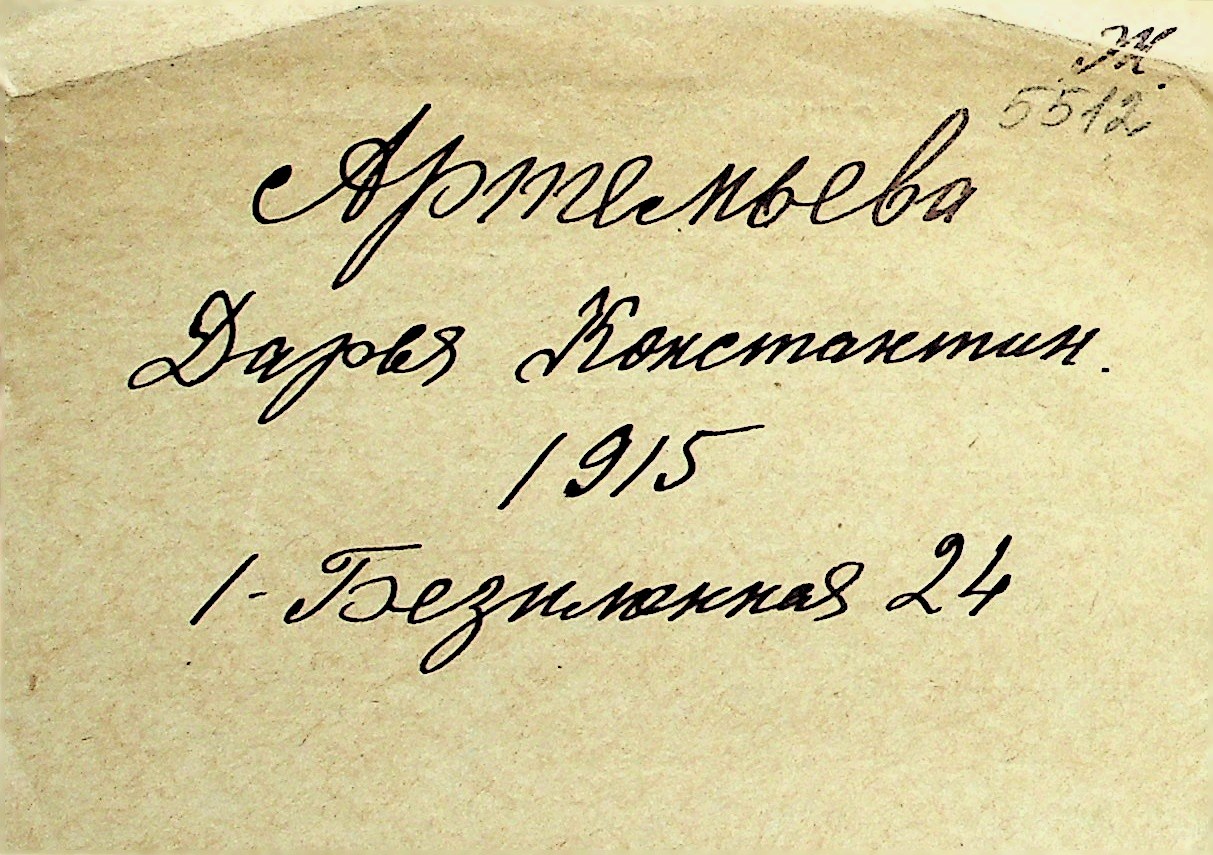 Ж.
5512
Артемьева
Дарья Константин.
1915
1-Безилюнная 24